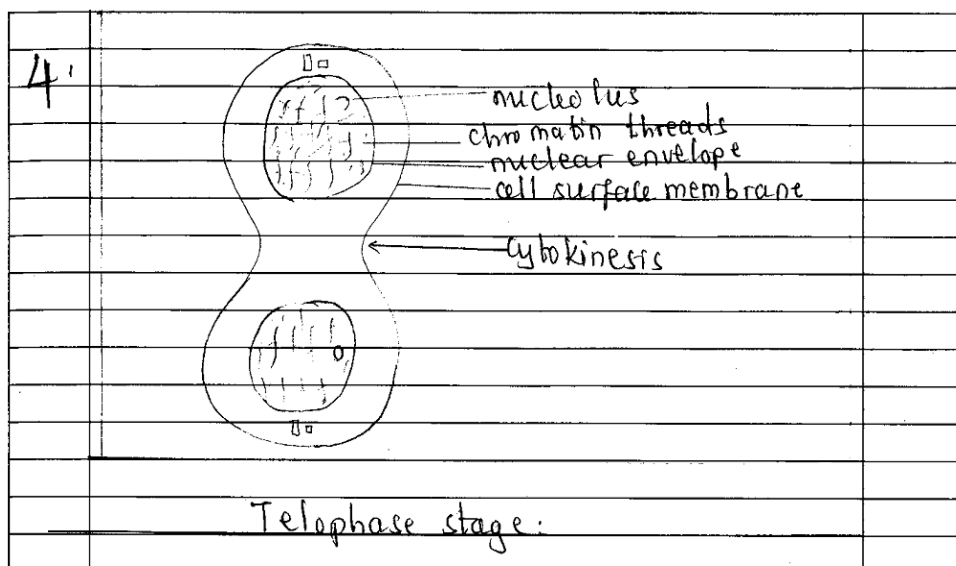 4.
nucleolus
chromatin threads
nuclear envelope
cell surface membrane
Cytokinesis
Telophase stage: